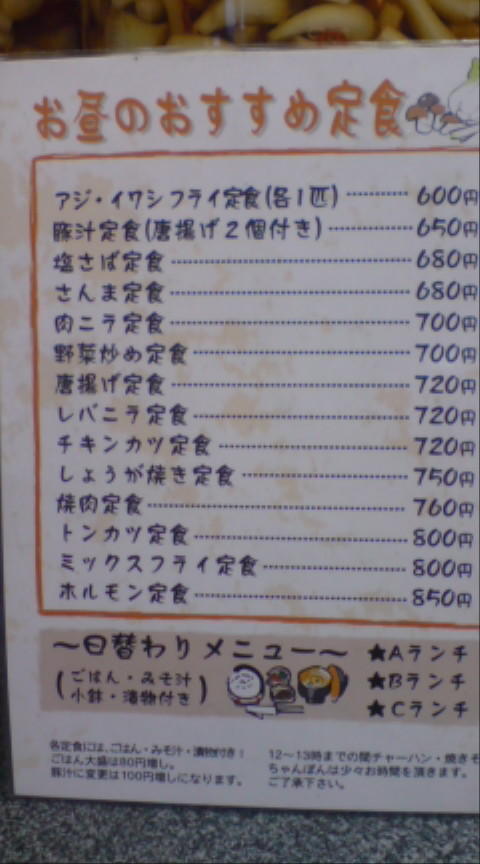 お昼のおすすめ定食
アジ・イワシフライ定食(各1匹) 600円
豚汁定食(唐揚げ2個付き) 650円
塩さば定食 680円
さんま定食 680円
肉ニラ定食 700円
野菜炒め定食 700円
唐揚げ定食 720円
レバニラ定食 720円
チキンカツ定食 720円
しょうが焼き定食 750円
焼肉定食 760円
トンカツ定食 800円
ミックスフライ定食 800円
ホルモン定食 850円
〜日替わりメニュー〜
(ごはん・みそ汁
小鉢・漬物付き)
★Aランチ
★Bランチ
★Cランチ
各定食には、ごはん・みそ汁・漬物付き!
ごはん大盛は80円増し。
豚汁に変更は100円増しになります。
12〜13時までの間チャーハン・焼きそ
ちゃんぽんは少々お時間を頂きます。
ご了承下さい。